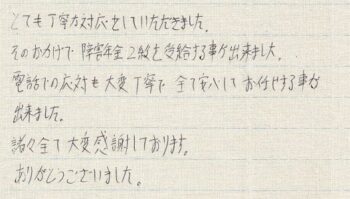 とても丁寧な対応をしていただきました。
そのおかげで障害年金2級を受給する事が出来ました。
電話での応対も大変丁寧で全て安心してお任せする事が
出来ました。
諸々全て大変感謝しております。
ありがとうございました。